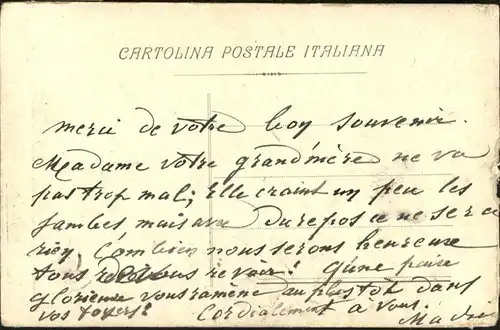 CARTOLINA POSTALE ITALIANA
merci de votre bon souvenir.
Madame votre grand'mère ne va
pas trop mal; Elle craint un peu les
jambes, mais avec du repos ce ne sera
rien. Combien nous serons heureuse
tous de vous revoir! Qu'une paix
glorieuse vous ramène au plus tôt dans
vos foyers! Cordialement à vous.